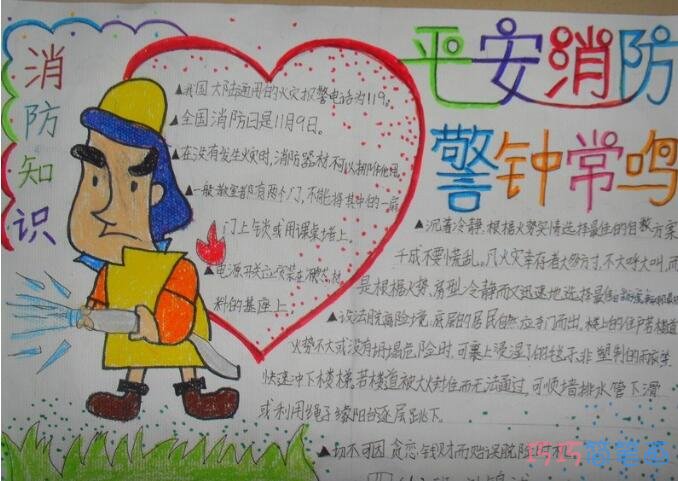 消防知识
平安消防
警钟常鸣
▲我国大陆通用的火灾报警电话为119。
▲全国消防日是11月9日。
▲在没有发生火灾时,消防器材不可以挪作他用
▲一般教室都有两个门,不能将其中的一扇
门上锁或用课桌堵上。
▲电源开关应安装在 材
料的基座上
▲沉着冷静,根据火势实情选择最佳的自救方案
千成不要慌乱。凡火灾幸存者大多方寸,不大呼大叫,而
是根据火势、房型冷静而又迅速地选择最佳
▲设法脱离险境,底层的居民自然应夺门而出,楼上的住户若楼道
火势不大或没有坍塌危险时,可裹上浸湿了的毯子、非塑制的雨衣
快速冲下楼梯,若楼道被大火封住而无法通过,可顺墙排水管下滑
或利用绳子缘阳台逐层跳下。
▲切不可因贪恋钱财而贻误脱险时机
巧巧简笔画